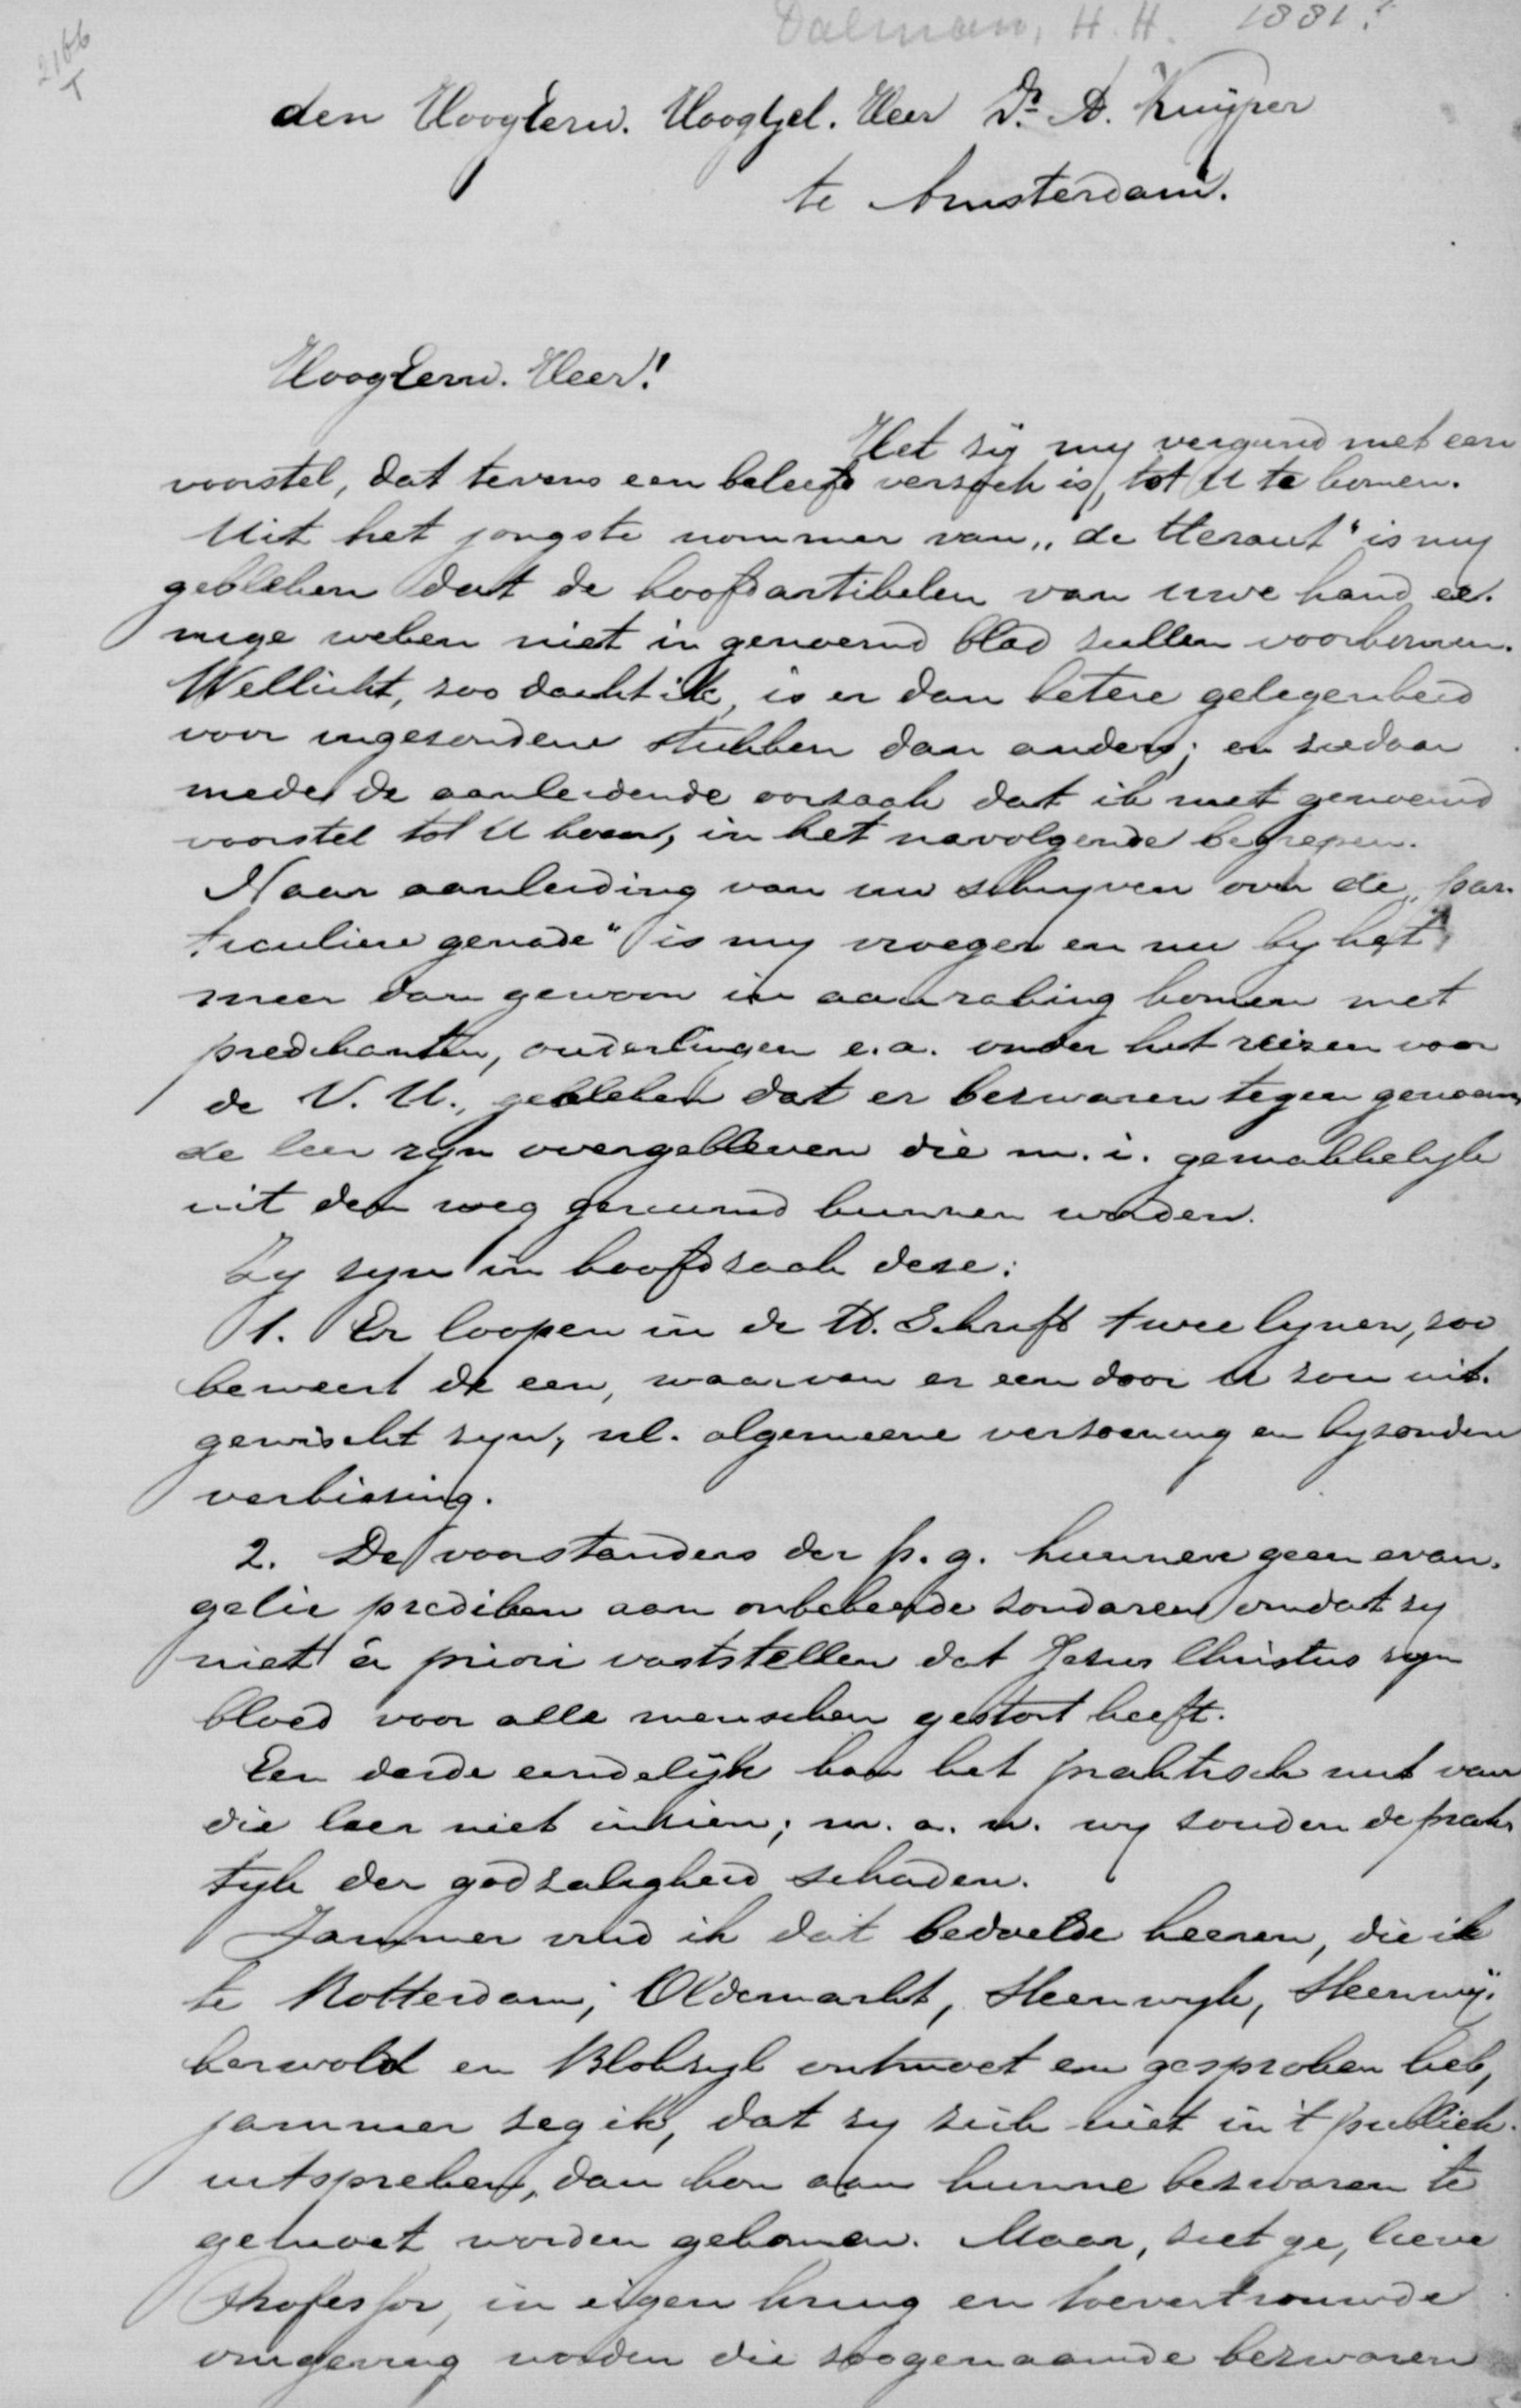 Dalman, H. H. 1881?
2166
T
den HoogEerw. HoogGel. Heer Dr. A. Kuijper
te Amsterdam.
HoogEerw. Heer!
Het zij my vergund met een
voorstel, dat tevens een beleefd verzoek is, tot U te komen.
Uit het jongste nommer van „de Heraut" is my
gebleken dat de hoofdartikelen van uwe hand ee-
nige weken niet in genoemd blad zullen voorkomen.
Wellicht, zoo dacht ik, is er dan betere gelegenheid
voor ingezondene stukken dan anders; en ziedaar
mede de aanleidende oorzaak dat ik met genoemd
voorstel tot U kom, in het navolgende begrepen.
Naar aanleiding van uw schryven over de „par-
ticuliere genade" is my vroeger en nu by het
meer dan gewoon in aanraking komen met
predikanten, ouderlingen e.a. onder het reizen voor
de V. U., gebleken dat er bezwaren tegen genoem-
de leer zyn overgebleven die m. i. gemakkelyk
uit den weg geruimd kunnen worden.
Zy zyn in hoofdzaak deze:
1. Er loopen in de H. Schrift twee lynen, zoo
beweert de een, waarvan er een door U zou uit-
gewischt zyn, nl. algemeene verzoening en byzondere
verkiezing.
2. De voorstanders der p. g. kunnen geen evan-
gelie prediken aan onbekeerde zondaren omdat zy
niet á priori vaststellen dat Jezus Christus zyn
bloed voor alle menschen gestort heeft.
Een derde eindelijk kan het praktisch nut van
die leer niet inzien; m. a. w. wy zouden de prak-
tyk der godzaligheid schaden.
Jammer vind ik dat bedoelde heeren, die ik
te Rotterdam, Oldemarkt, Steenwyk, Steenwij-
kerwold en Blokzyl ontmoet en gesproken heb,
jammer zeg ik, dat zy zich niet in 't publiek
uitspreken, dan kon aan hunne bezwaren te
gemoet worden gekomen. Maar, ziet ge, lieve
Professor, in eigen kring en toevertrouwde
omgeving worden die zoogenaamde bezwaren